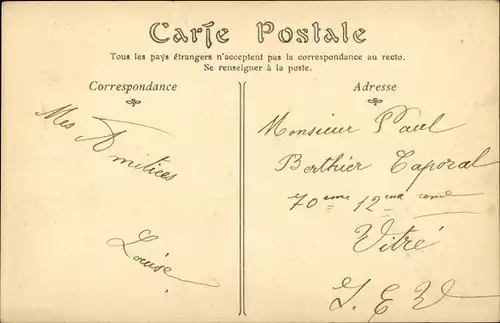 Carte Postale
Tous les pays étrangers n'acceptent pas la correspondance au recto.
Se renseigner à la poste.
Correspondance
Adresse
Mes
Amitiées
Louise
Monsieur Paul
Berthier Caporal
70eme 12eme
Vitré
I. E V